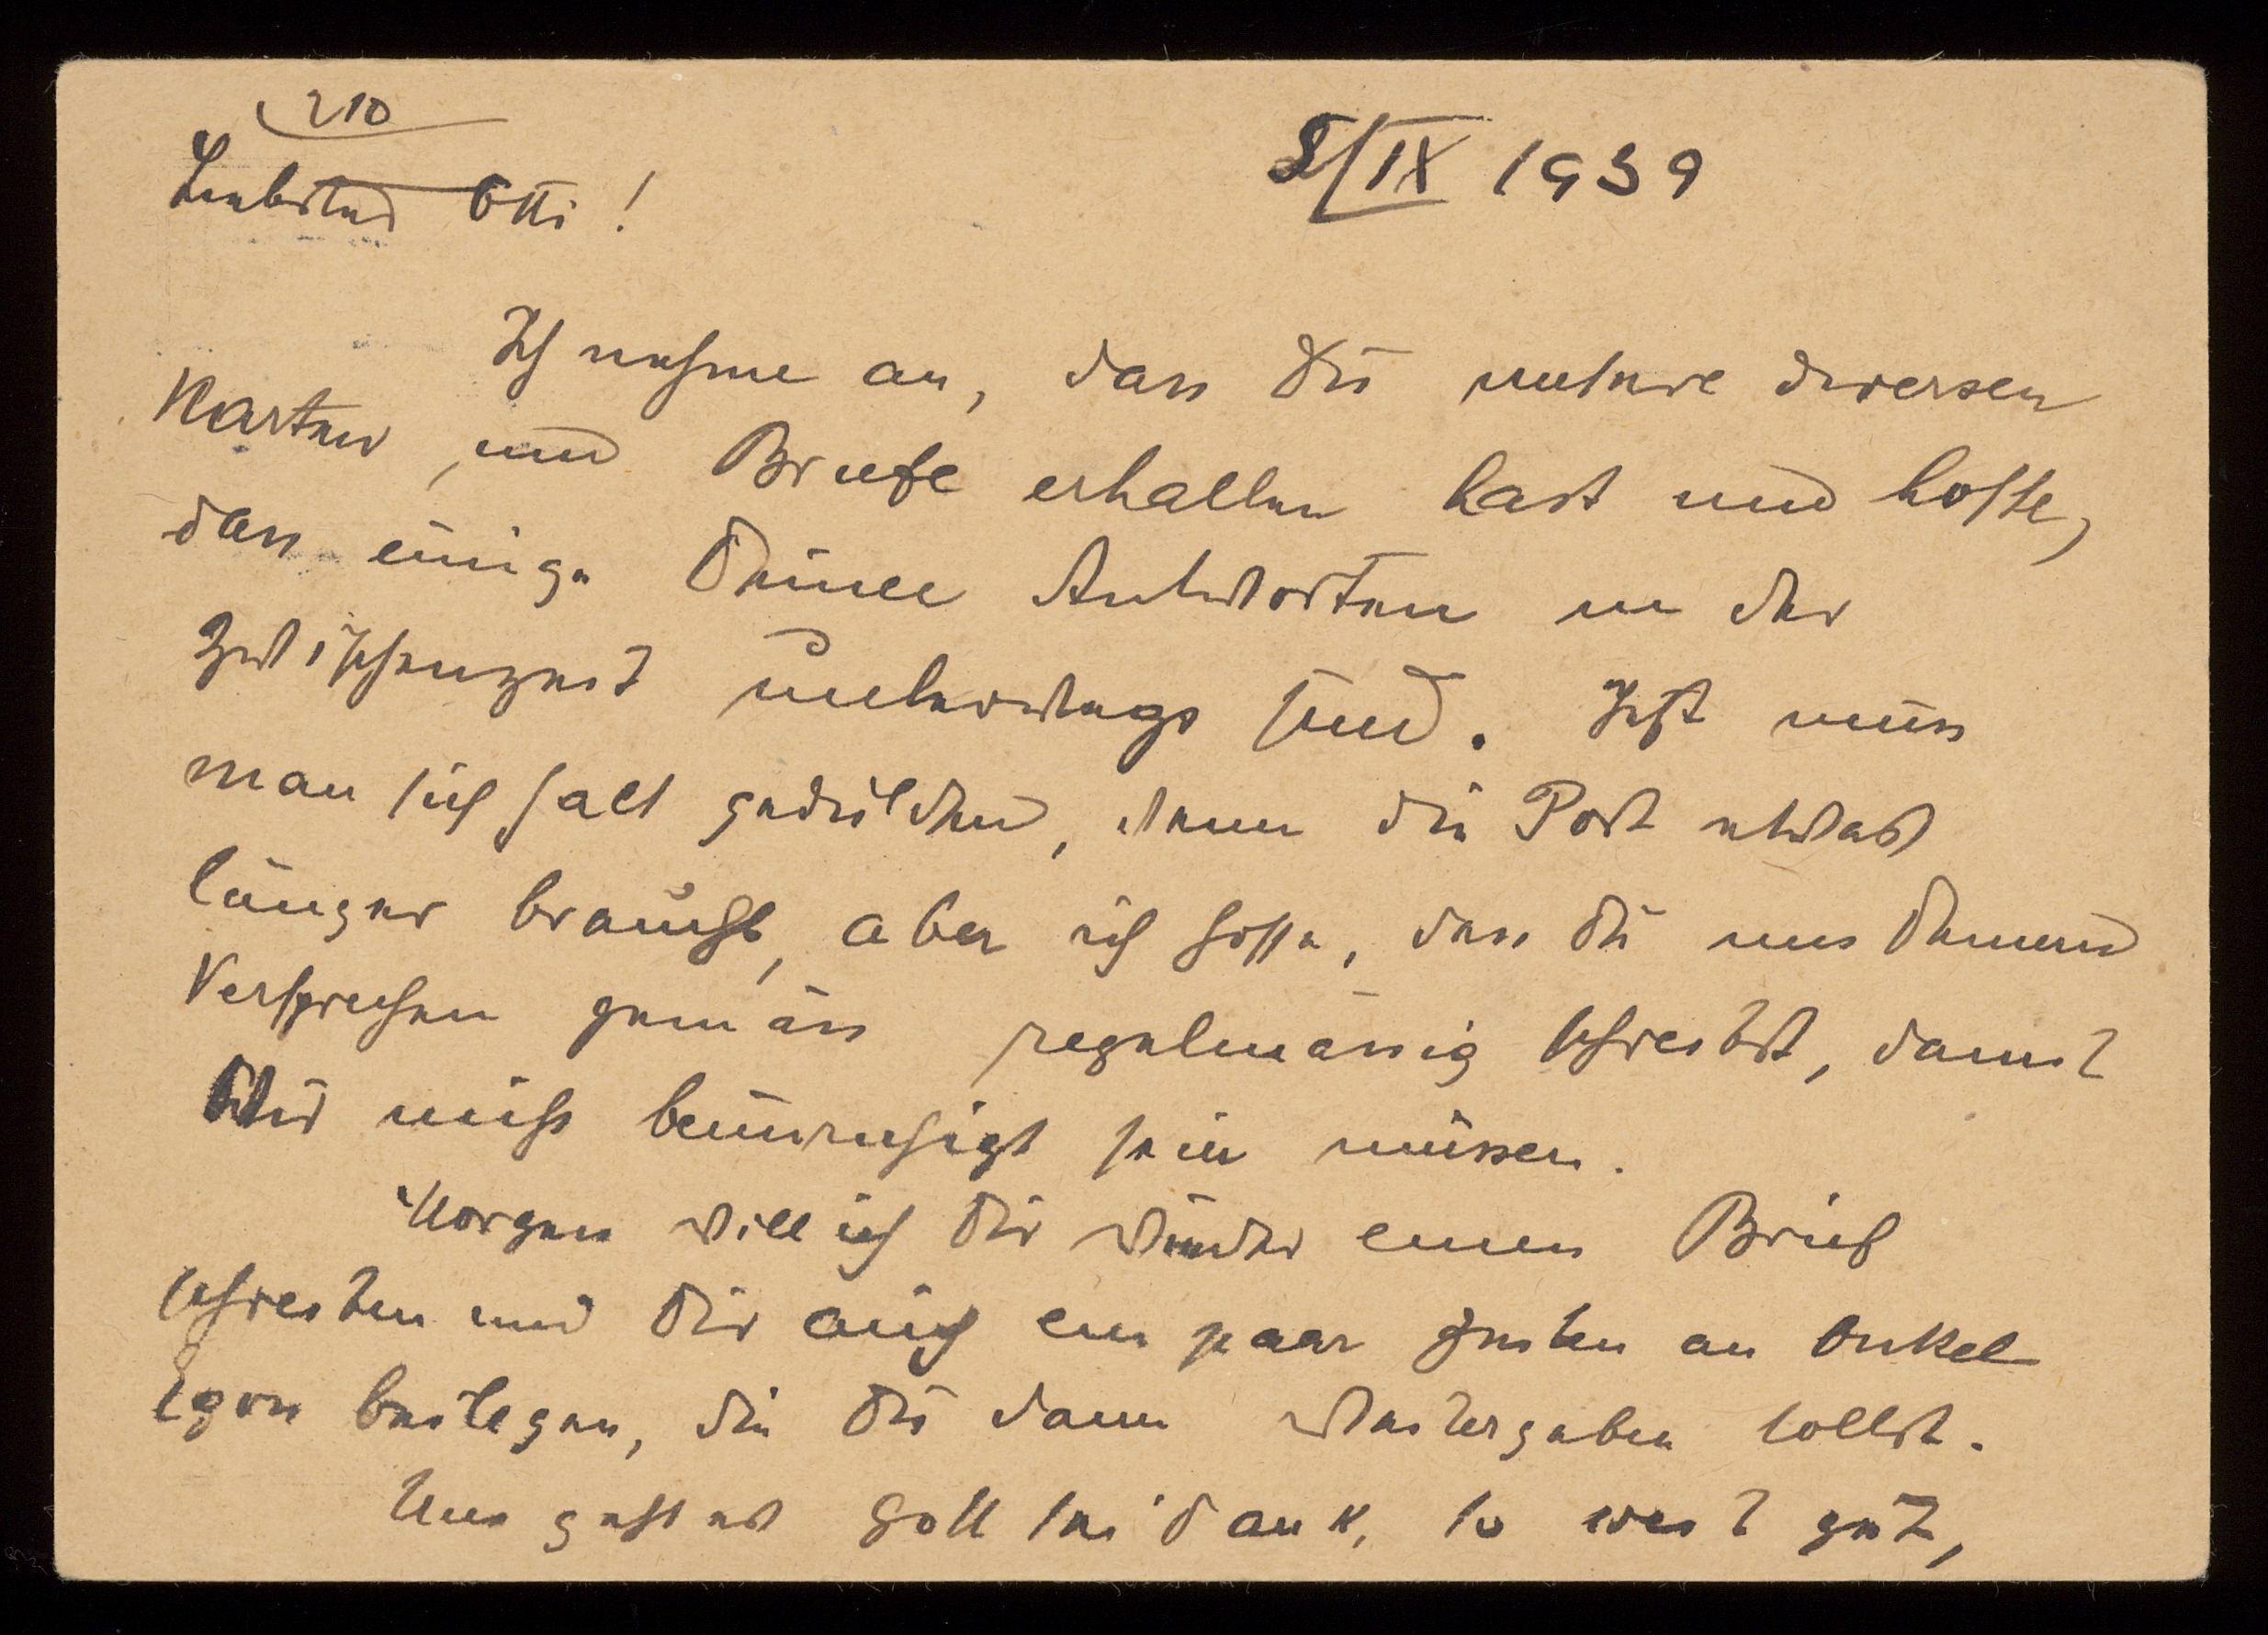 210
Liebstes Otti!
5/IX 1939
Ich nehme an, dass Du unsere diversen
Karten und Briefe erhalten hast und hoffe,
dass einige Deiner Antworten in der
Zwischenzeit unterwegs sind. Jetzt muss
man sich halt gedulden, wenn die Post etwas
länger braucht, aber ich hoffe, dass Du uns Deinem
Versprechen gemäss regelmässig schreibst, damit
wir nicht beunruhigt sein müssen.
Morgen will ich Dir wieder einen Brief
schreiben und Dir auch ein paar Zeilen an Onkel
Egon beilegen, die Du dann weitergeben sollst.
Uns geht es Gott sei dank, so weit gut,